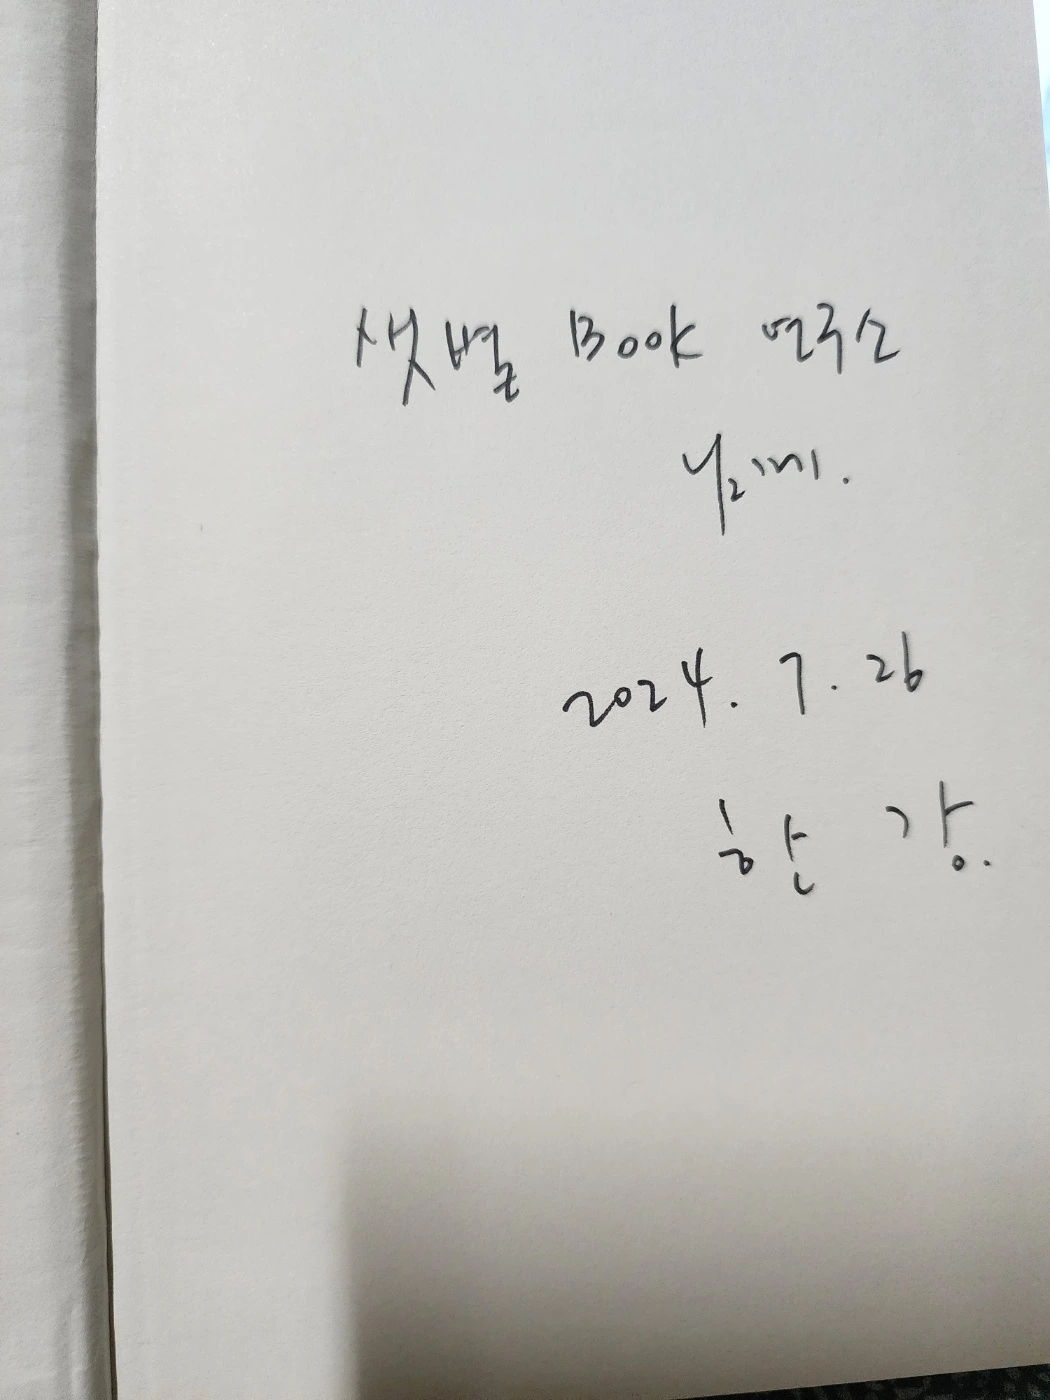 샛별 Book 연구소
님께.
2024. 7. 26
한 강.